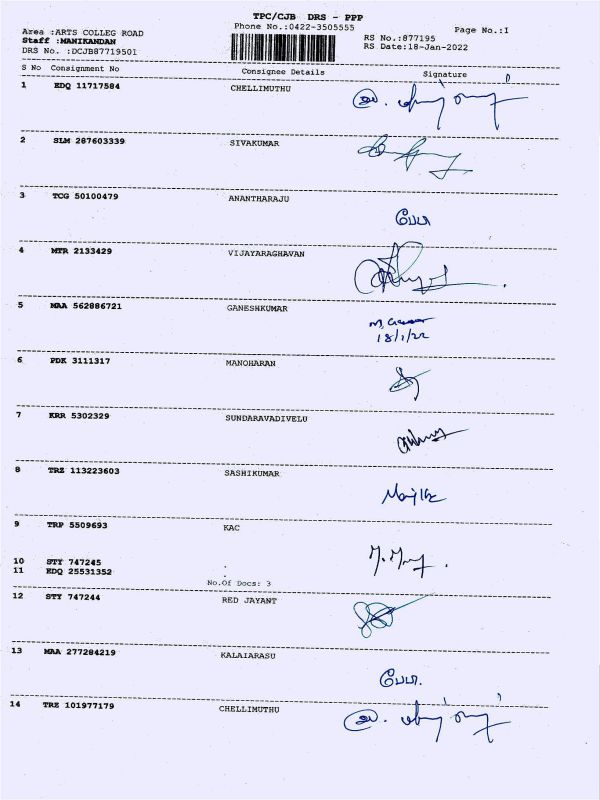 TPC/CJB DRS - PPP
Phone No.:0422-3505555
Page No.:I
Area :ARTS COLLEG ROAD
RS No.:877195
Staff :MANIKANDAN
RS Date:18-Jan-2022
DRS No. :DCJB87719501
S No Consignment No Consignee Details Signature
1 EDQ 11717584 CHELLIMUTHU
2 SLM 287603339 SIVAKUMAR
3 TCG 50100479 ANANTHARAJU
பேபி
4 MTR 2133429 VIJAYARAGHAVAN
5 MAA 562886721 GANESHKUMAR
18/1/22
6 PDK 3111317 MANOHARAN
7 KRR 5302329 SUNDARAVADIVELU
8 TRZ 113223603 SASHIKUMAR
9 TRP 5509693 KAC
10 STY 747245
11 EDQ 25531352
No.Of Docs: 3
12 STY 747244 RED JAYANT
13 MAA 277284219 KALAIARASU
பேபி.
14 TRZ 101977179 CHELLIMUTHU